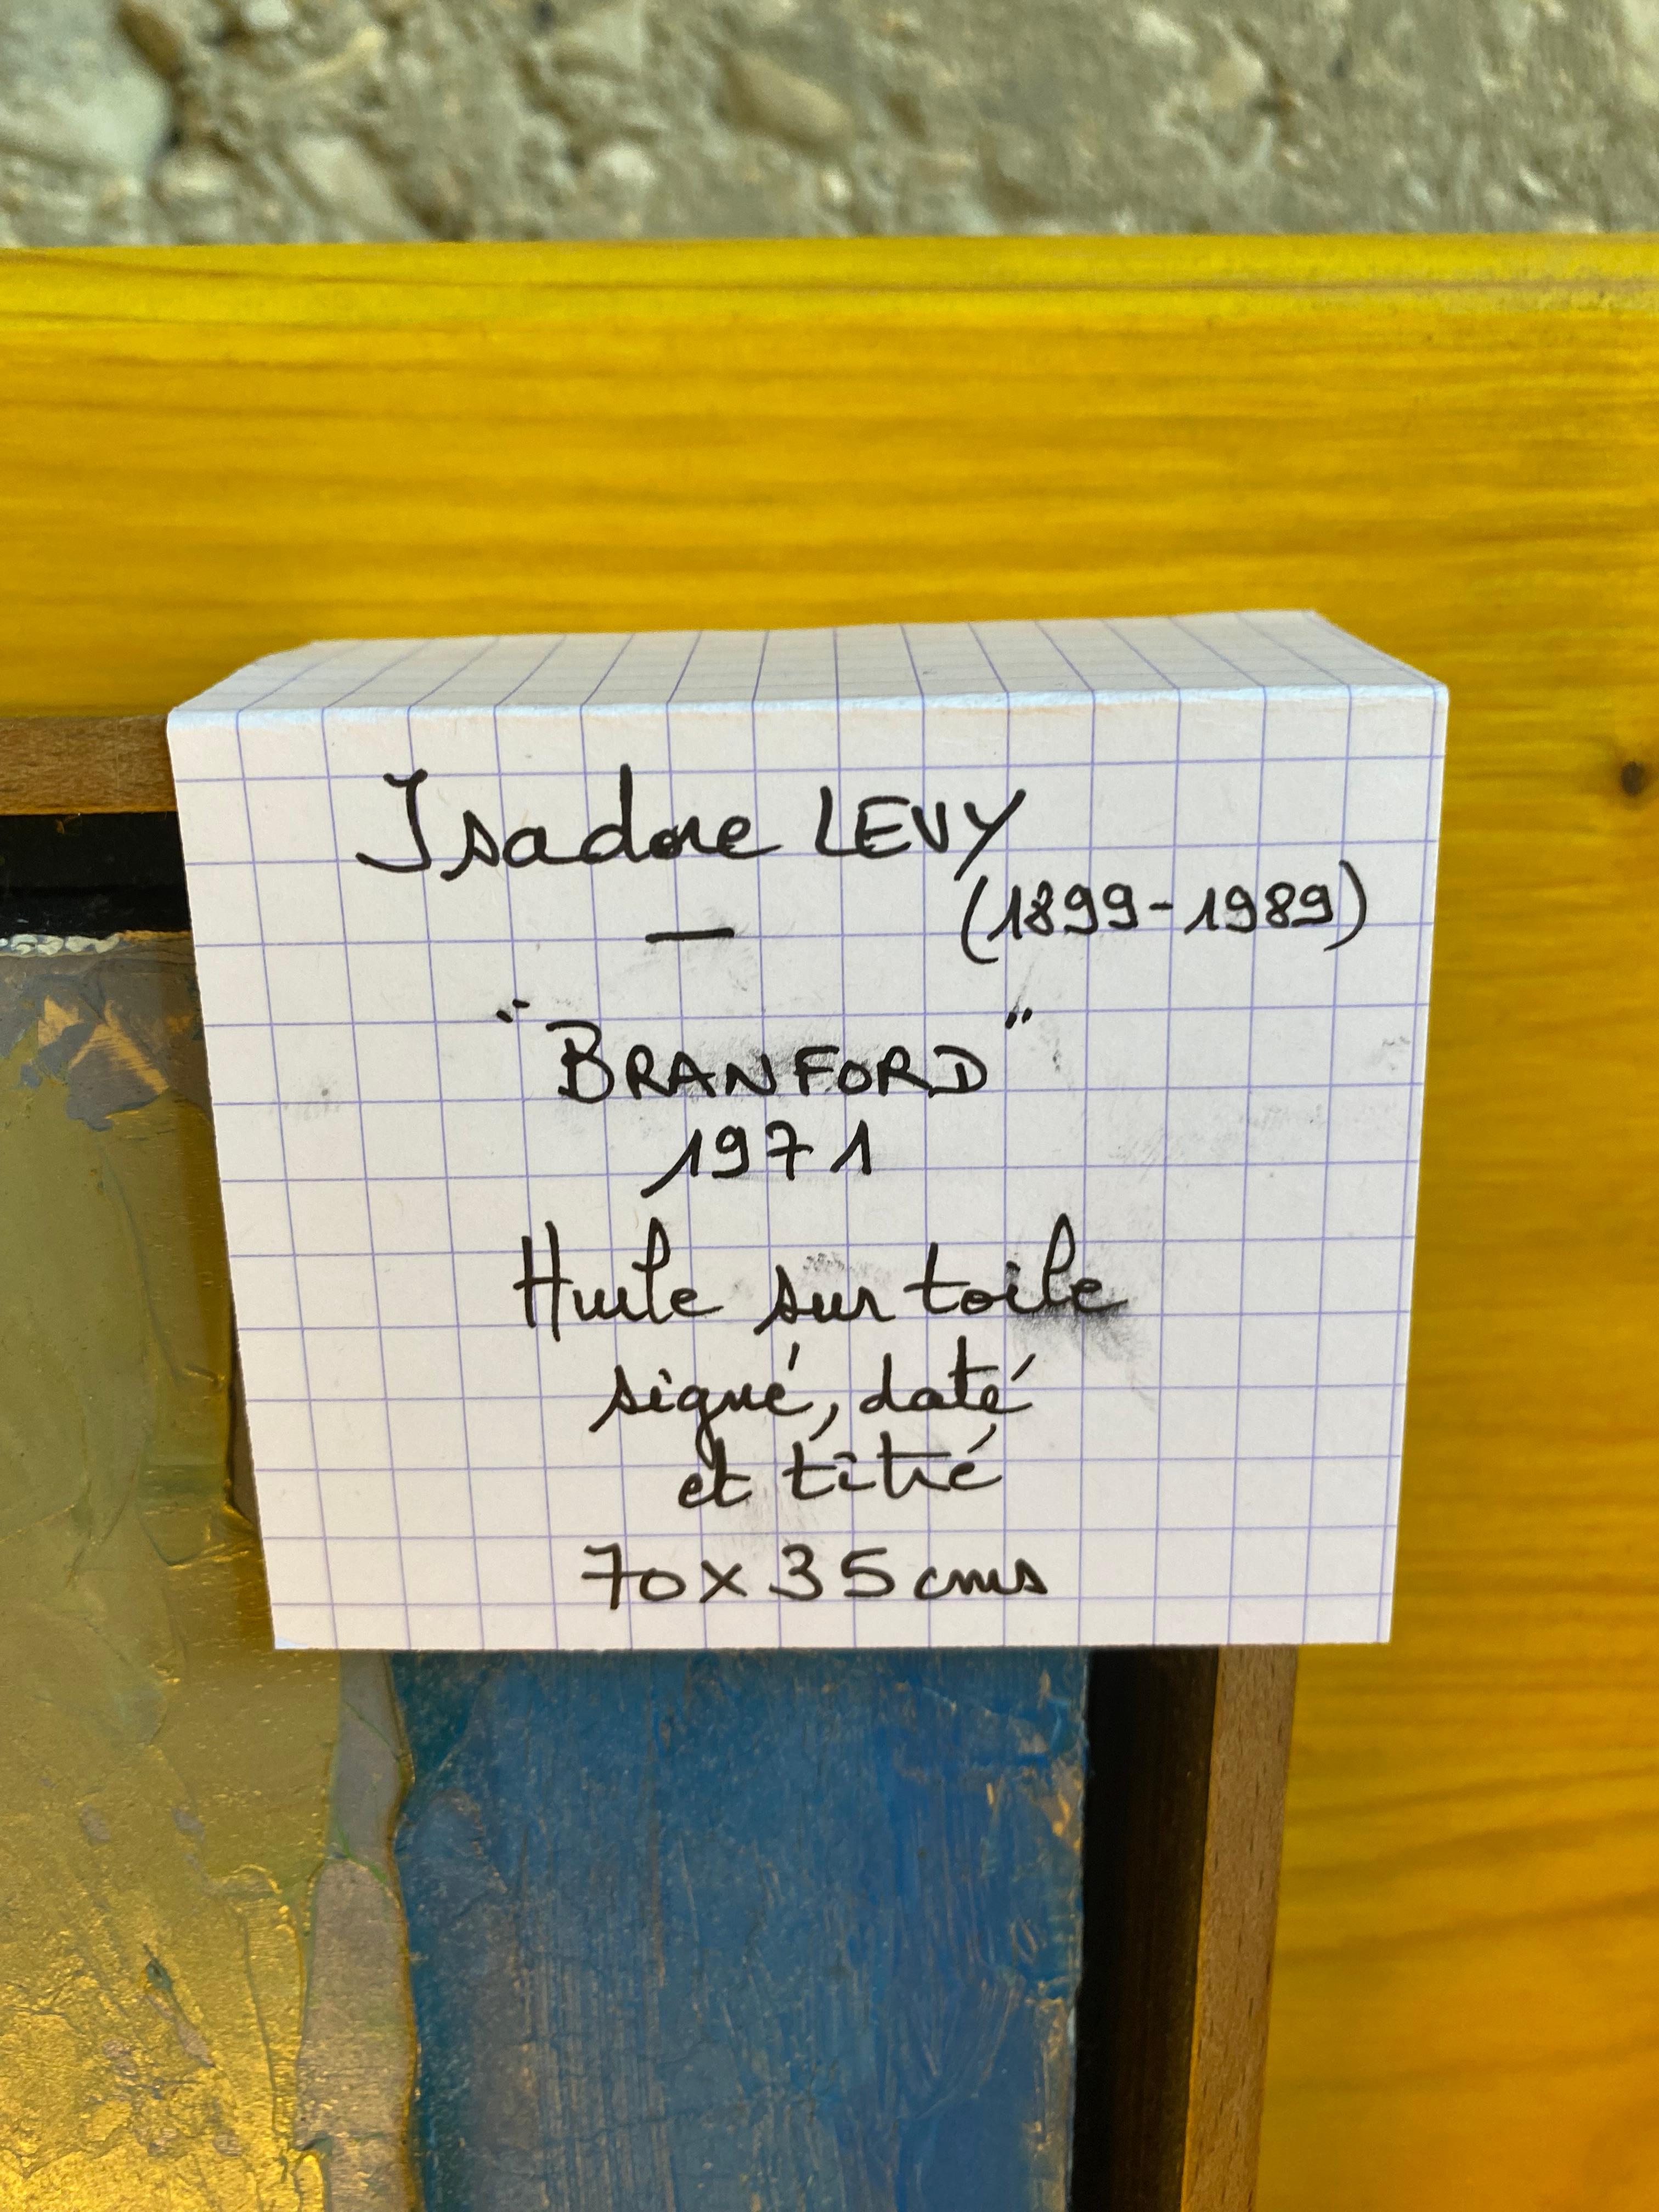 Isadore LEVY
(1899-1989)
—
"BRANFORD"
1971
Huile sur toile
signé, daté
et titré
70x35cms